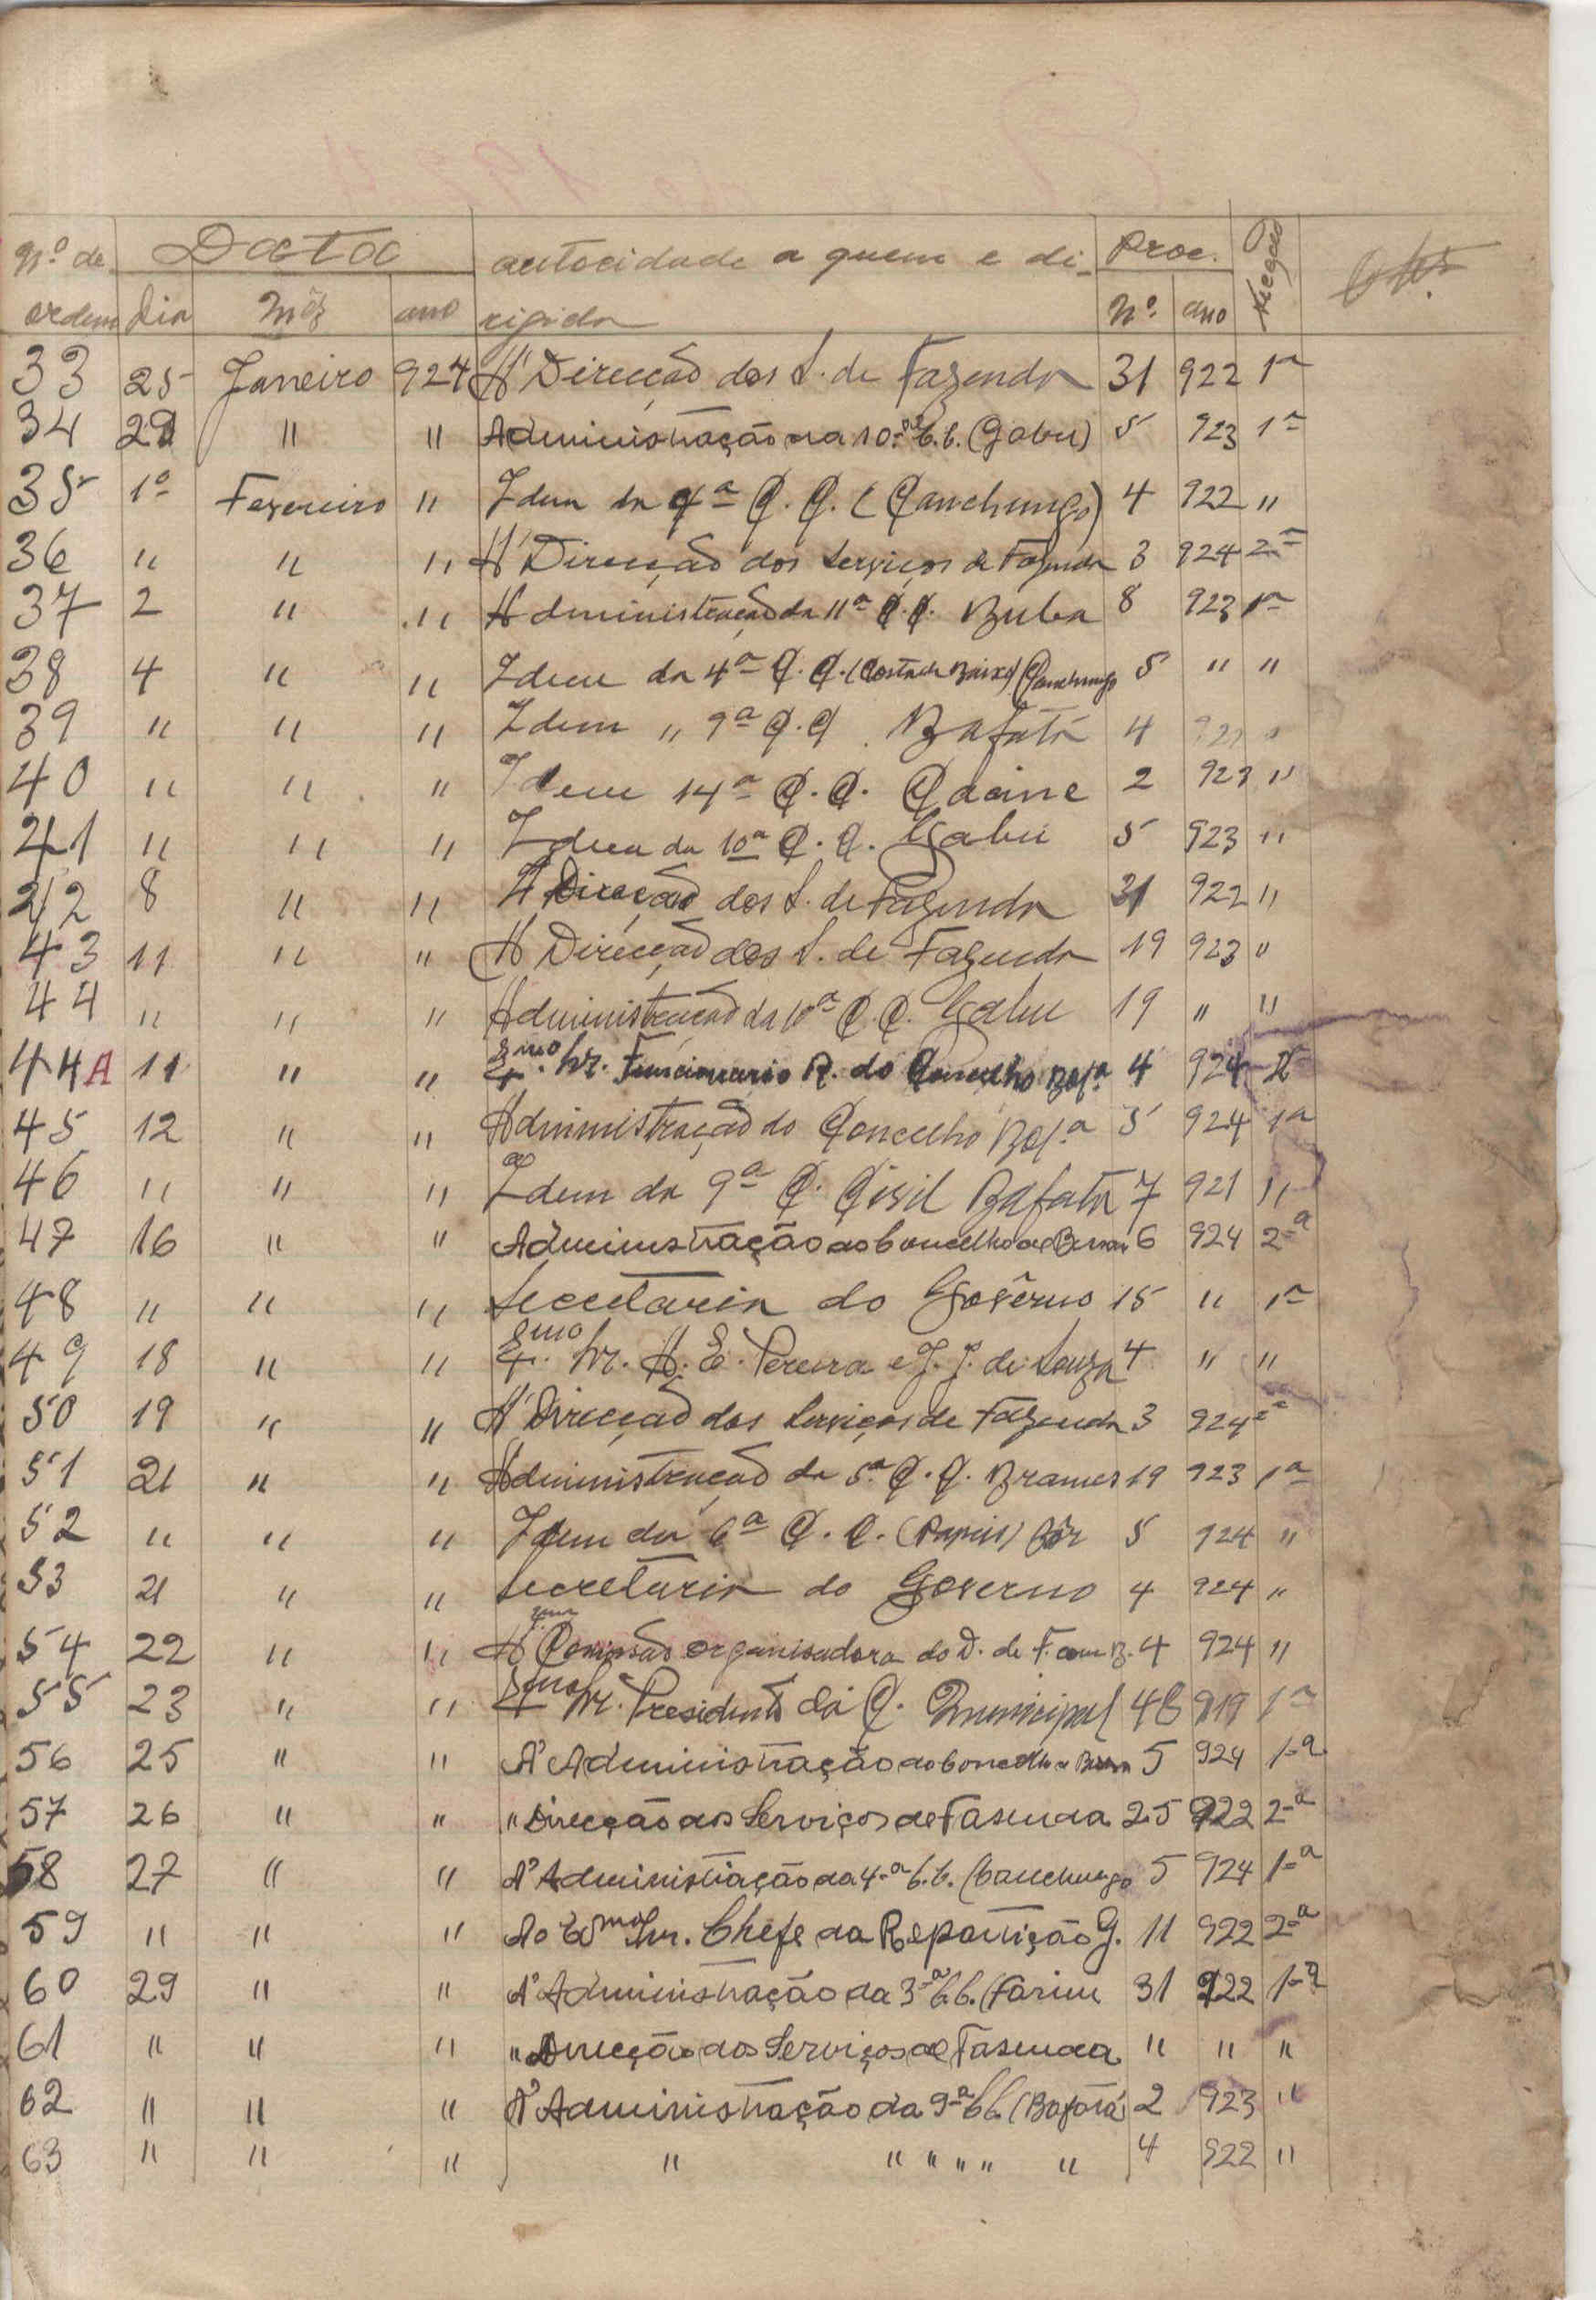 Nº de ordem Data autocidade a quem e di- Proc. Negocio Obs.
Dia Mês ano rigida Nº ano
33 25 Janeiro 924 A' Direcção dos S. de Fazenda 31 922 1ª
34 29 " " Administração da 10.ª C.C. (Gabu) 5 923 1ª
35 1º Fevereiro " Idem da 4ª C.C. (Canchungo) 4 922 "
36 " " " A' Direcção dos Serviços de Fazenda 3 924 2ª
37 2 " " Administração da 11ª C.C. Buba 8 923 1ª
38 4 " " Idem da 4ª C.C. (Costa de Baixo) Canchungo 5 " "
39 " " " Idem " 9ª C.C. Bafatá 4 921 "
40 " " " Idem 14ª C.C. Cacine 2 923 "
41 " " " Idem da 10ª C.C. Gabu 5 923 "
42 8 " " A' Direcção dos S. de Fazenda 31 922 "
43 11 " " A' Direcção dos S. de Fazenda 19 923 "
44 " " " Administração da 10ª C.C. Gabu 19 " "
44A 11 " " Exmo. Sr. Funcionario R. do Concelho 4 924 2ª
45 12 " " Administração do Concelho 5 924 1ª
46 " " " Idem da 9ª C. Civil Bafatá 7 921 "
47 16 " " Administração do Concelho de Bissau 6 924 2ª
48 " " " Secretaria do Govêrno 15 " 1ª
49 18 " " Exmo. Sr. A. E. Pereira e J. J. de Souza 4 " "
50 19 " " A' Direcção dos Serviços de Fazenda 3 924 2ª
51 21 " " Administração da 5ª C.C. Brames 19 923 1ª
52 " " " Idem da 6ª C.C. (Papeis) Bôr 5 924 "
53 21 " " Secretaria do Governo 4 924 "
54 22 " " A' Comissão Organisadora do D. de F. em B. 4 924 "
55 23 " " Exmo Sr. Presidente da C. Municipal 48 919 1ª
56 25 " " A' Administração do Concelho de Bissau 5 924 1-ª
57 26 " " " Direcção dos Serviços de Fasenda 25 922 2-ª
58 27 " " A' Administração da 4-ª C.C. (Canchungo 5 924 1-ª
59 " " " Ao Exmo Snr. Chefe da Repartição G. 11 922 2-ª
60 29 " " A' Administração da 3-ª C.C. (Farim 31 922 1-ª
61 " " " " Direcção dos Serviços de Fasenda " " "
62 " " " A' Administração da 9-ª C.C. (Bafatá) 2 923 "
63 " " " " " " " " " 4 922 "